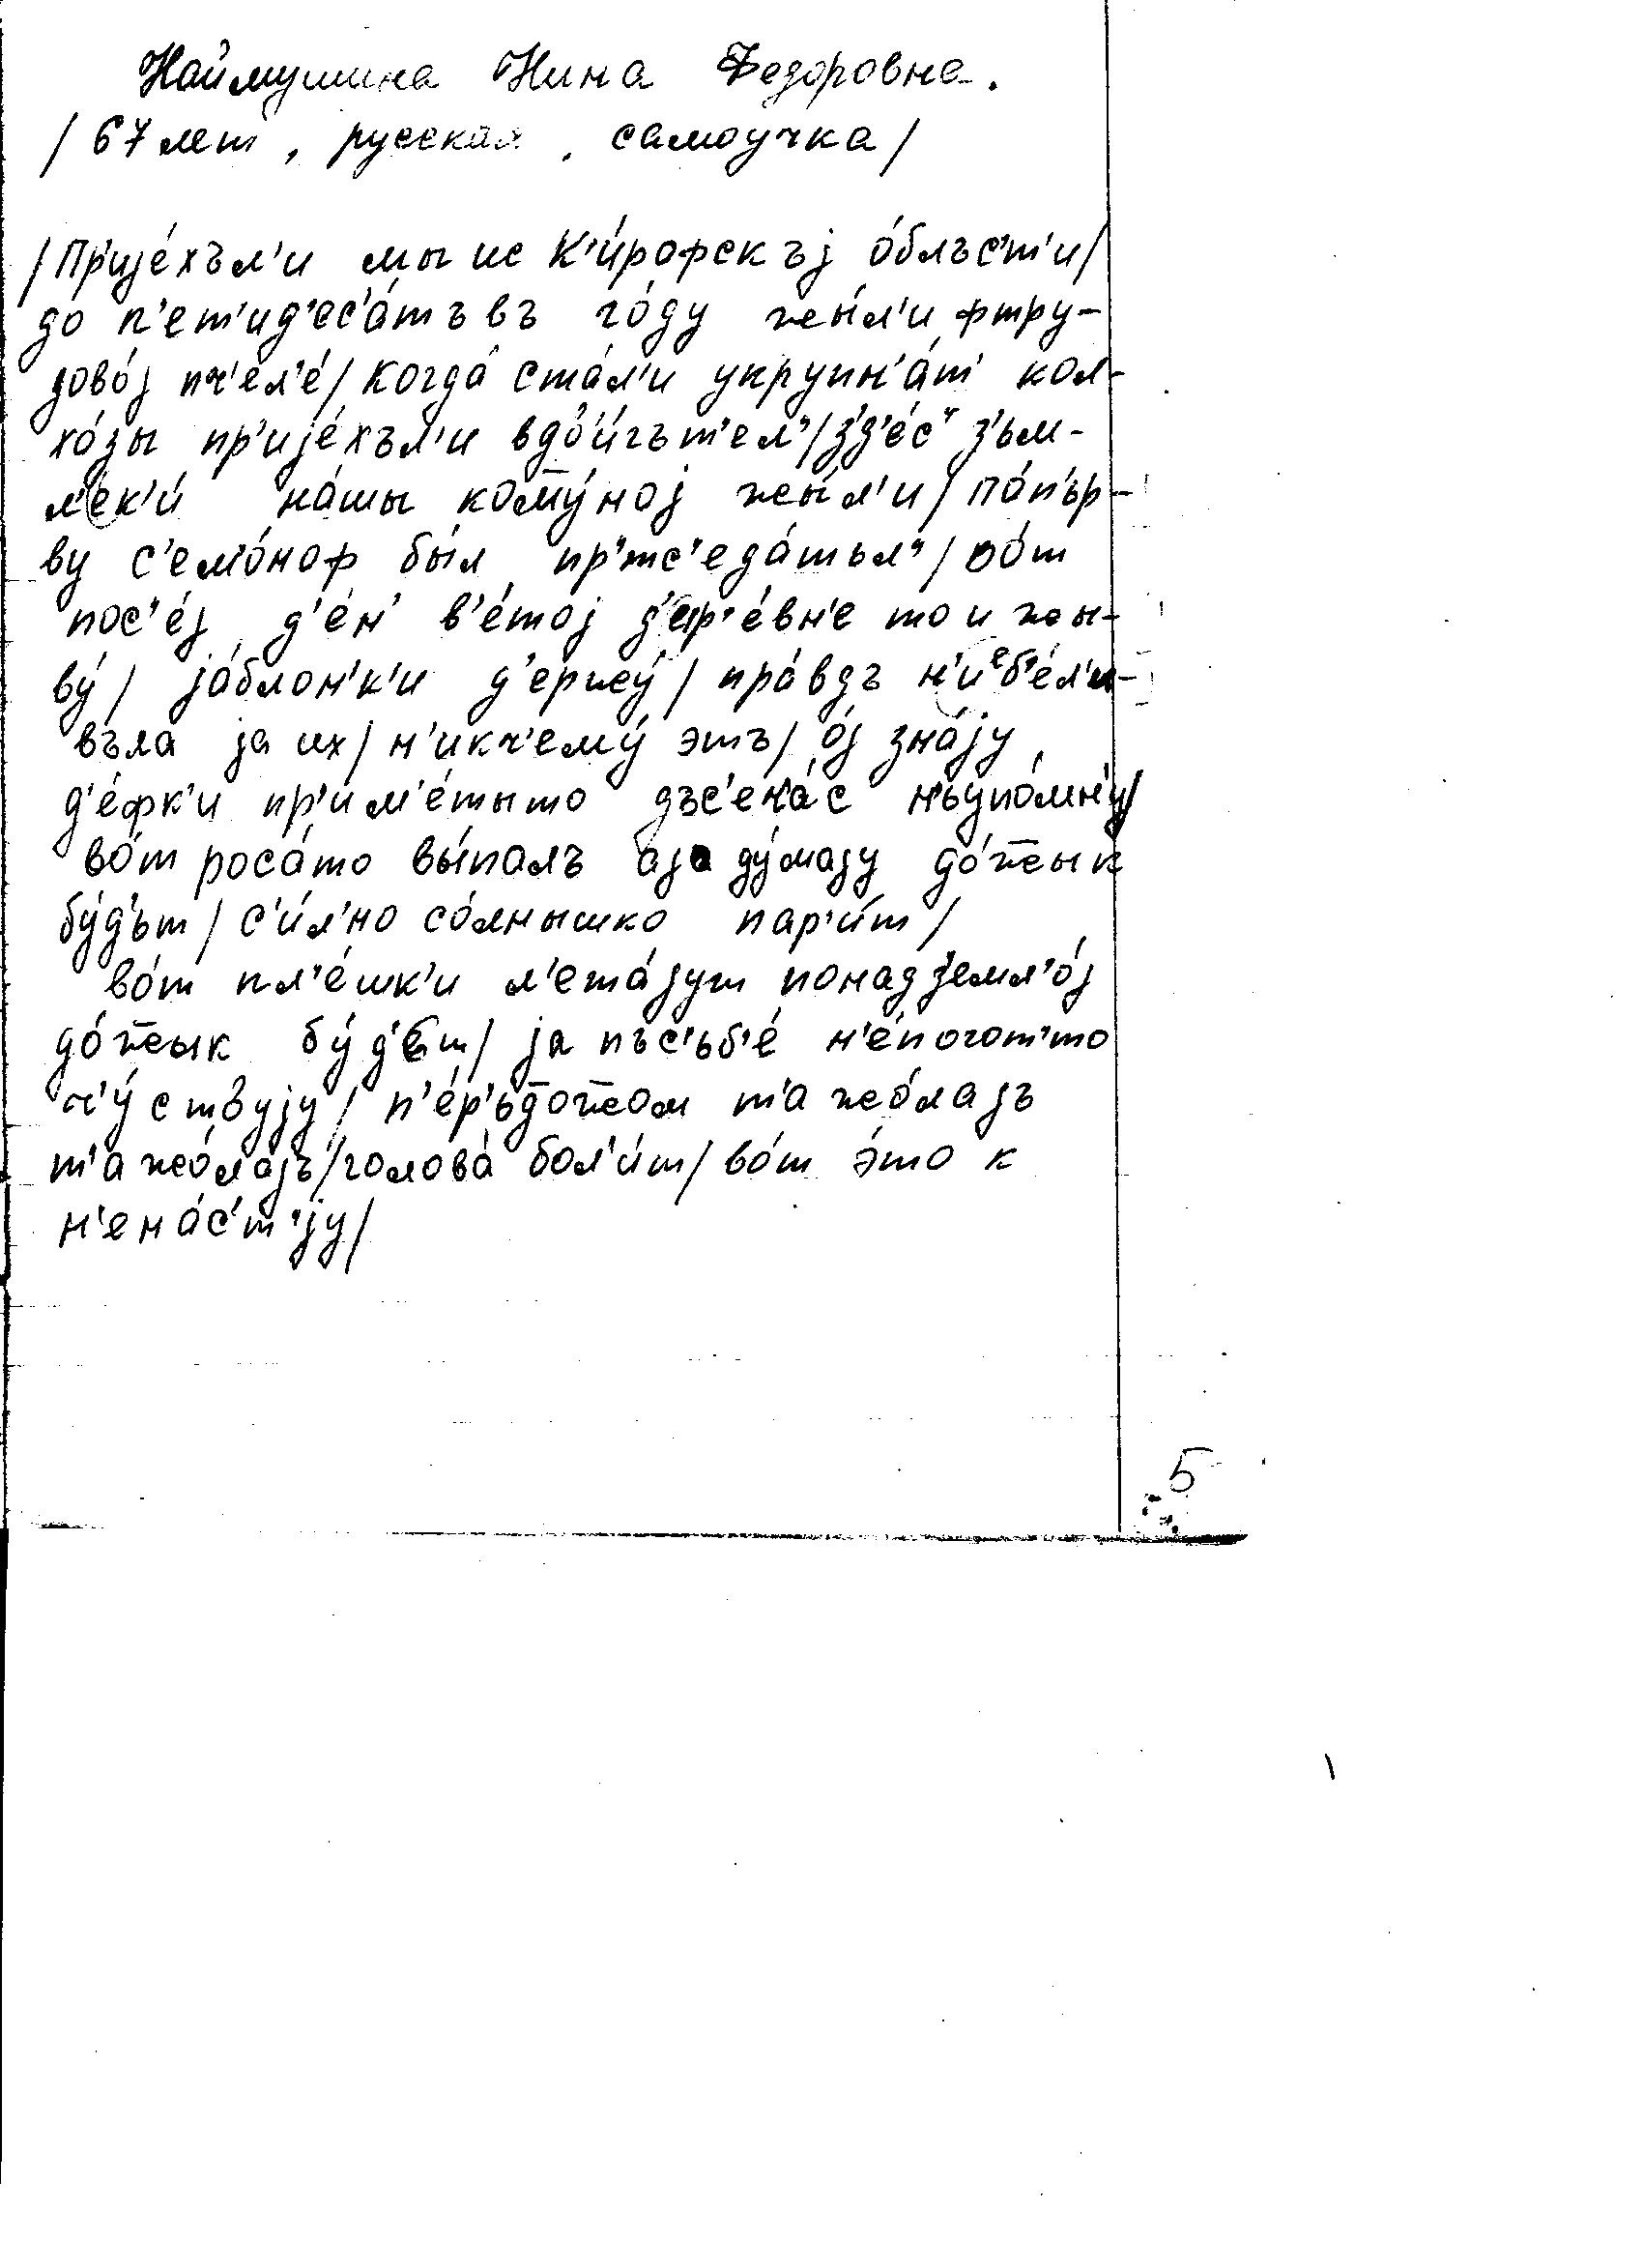 Наймушина Нина Федоровна.
/67 лет, русская, самоучка/
/Пр'ијéхъл'и мы ис К'и́рофскъј óблъс'т'и/
до п'ет'ид'ес'áтъвъ гóду жы́л'и фтру-
довóј пч'ел'é/ когдá стáл'и укрупн'áт' кол-
хóзы пр'ијéхъл'и вдв'и́гът'ел'/з'д'éс' з'ьм-
л'ек'и́ нáшы комýној жы́л'и/ пóп'ьр-
ву с'ем'óноф бы́л пр'ьтс'едáтьл'/ вóт
пос'éј д'éн' в'éтој д'ер'éвн'е то и жы-
вý/ јáблон'к'и д'ержý/ прáвдъ н'иᵉб'éл'и-
въла ја их/ н'икч'емý этъ/ óј знáју
д'éфк'и пр'им'éтыто дъс'ечáс н'ьупóмн'у/
вóт росáто вы́палъ аја дýмају дóжык
бýд'ьт/ с'и́л'но сóлнышко пар'и́т/
вóт пл'éшк'и л'етáјут понадземл'óј
дóжык бýд'ет/ ја пъс'ьб'é н'éпогот'то
ч'ýствују/ п'éр'ьдожжом т'ажóлајъ
т'ажóлајъ/головá бол'и́т/ вóт э́то к
н'енáс'т'ју/
5